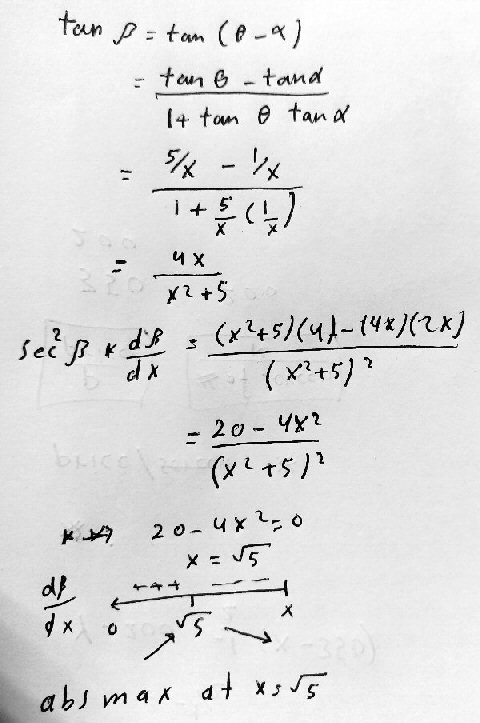 tan β = tan (θ - α)
= tan θ - tan α / 1 + tan θ tan α
= 5/x - 1/x / 1 + 5/x (1/x)
= 4x / x² + 5
sec² β * dβ/dx = (x²+5)(4) - (4x)(2x) / (x²+5)²
= 20 - 4x² / (x²+5)²
20 - 4x² = 0
x = √5
dβ/dx +++ --- 
0 √5 x
abs max at x = √5